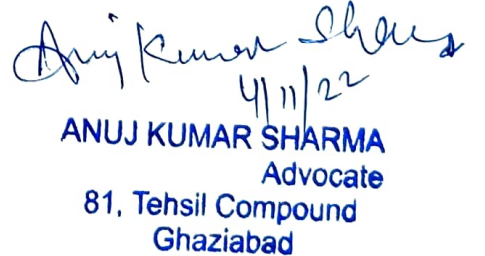 Anuj Kumar Sharma
4/11/22
ANUJ KUMAR SHARMA
Advocate
81, Tehsil Compound
Ghaziabad